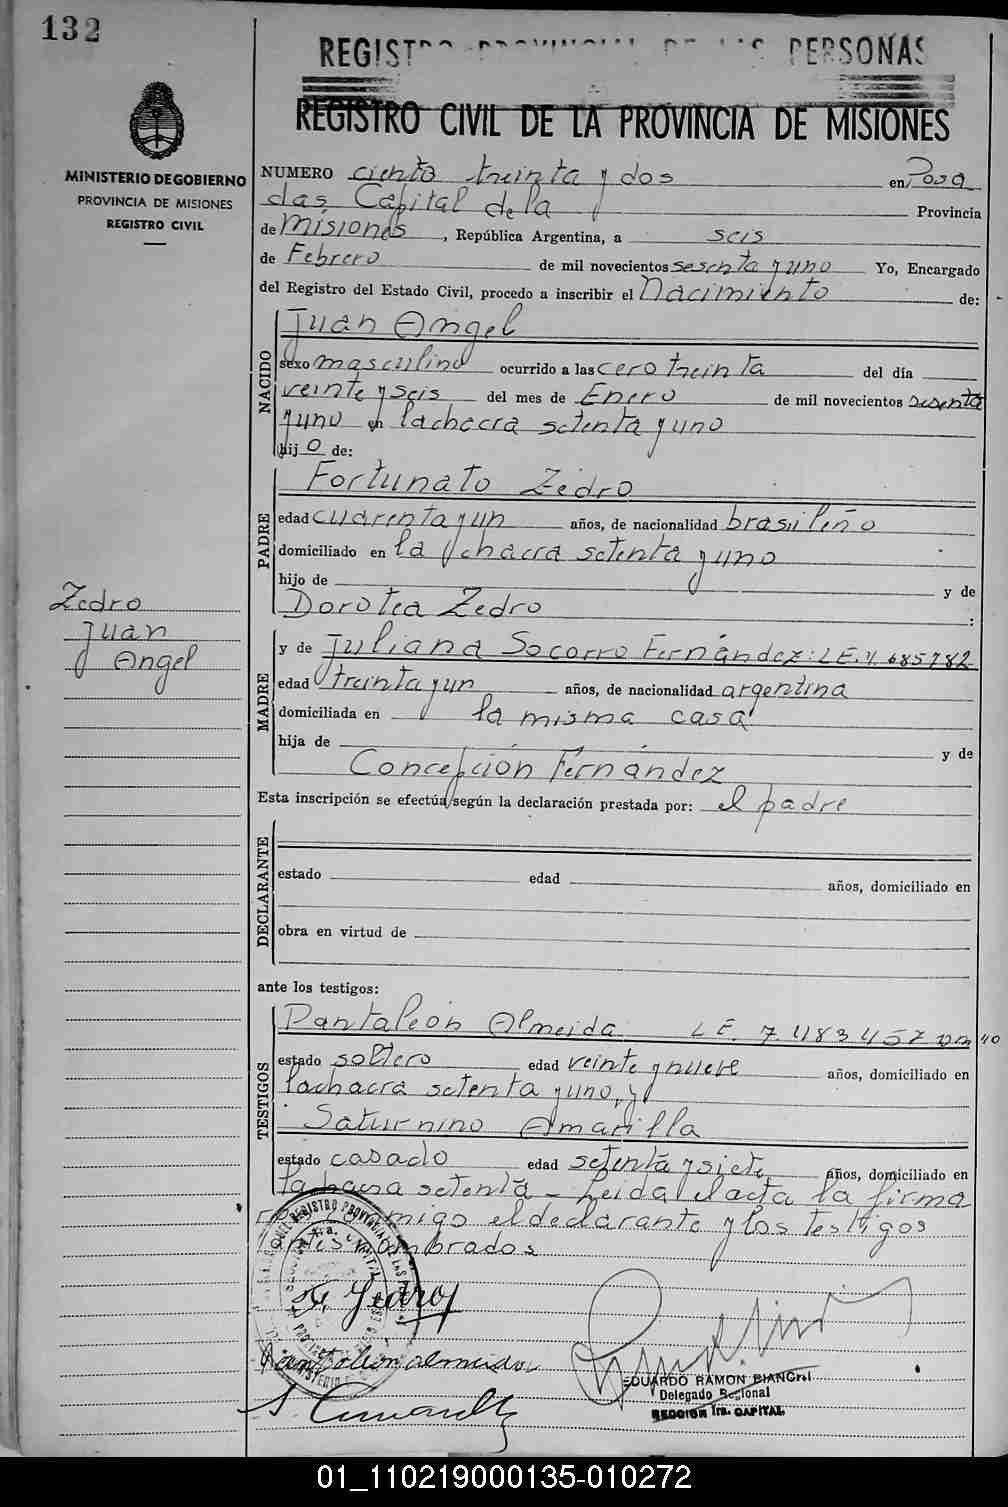 132
REGISTRO PROVINCIAL DE LAS PERSONAS
REGISTRO CIVIL DE LA PROVINCIA DE MISIONES
MINISTERIO DE GOBIERNO
PROVINCIA DE MISIONES
REGISTRO CIVIL
NUMERO ciento treinta y dos en Posa
das Capital de la Provincia
de Misiones, República Argentina, a seis
de Febrero de mil novecientos sesenta y uno Yo, Encargado
del Registro del Estado Civil, procedo a inscribir el Nacimiento de:
NACIDO
Juan Angel
sexo masculino ocurrido a las cero treinta del día
veinte y seis del mes de Enero de mil novecientos sesenta
y uno en la chacra setenta y uno
hijo de:
PADRE
Fortunato Zedro
edad cuarenta y un años, de nacionalidad brasileño
domiciliado en la chacra setenta y uno
hijo de y de
Dorotea Zedro :
Zedro
Juan
Angel
MADRE
y de Juliana Socorro Fernández: L E. 4. 685782
edad treinta y un años, de nacionalidad argentina
domiciliada en la misma casa
hija de y de
Concepción Fernández
Esta inscripción se efectúa según la declaración prestada por: el padre
DECLARANTE
estado edad años, domiciliado en
obra en virtud de
ante los testigos:
TESTIGOS
Pantaleón Almeida L E. 7. 483 457 DM 40
estado soltero edad veinte y nueve años, domiciliado en
la chacra setenta y uno, y
Saturnino Amarilla
estado casado edad setenta y siete años, domiciliado en
la chacra setenta - Leida el acta la firma
migo el declarante y los testigos
antes nombrados
F. Zedro
Pantaleon almeida
S Amarilla
EDUARDO RAMON BIANCHI
Delegado Regional
SECCION 1ra. CAPITAL
01_110219000135-010272